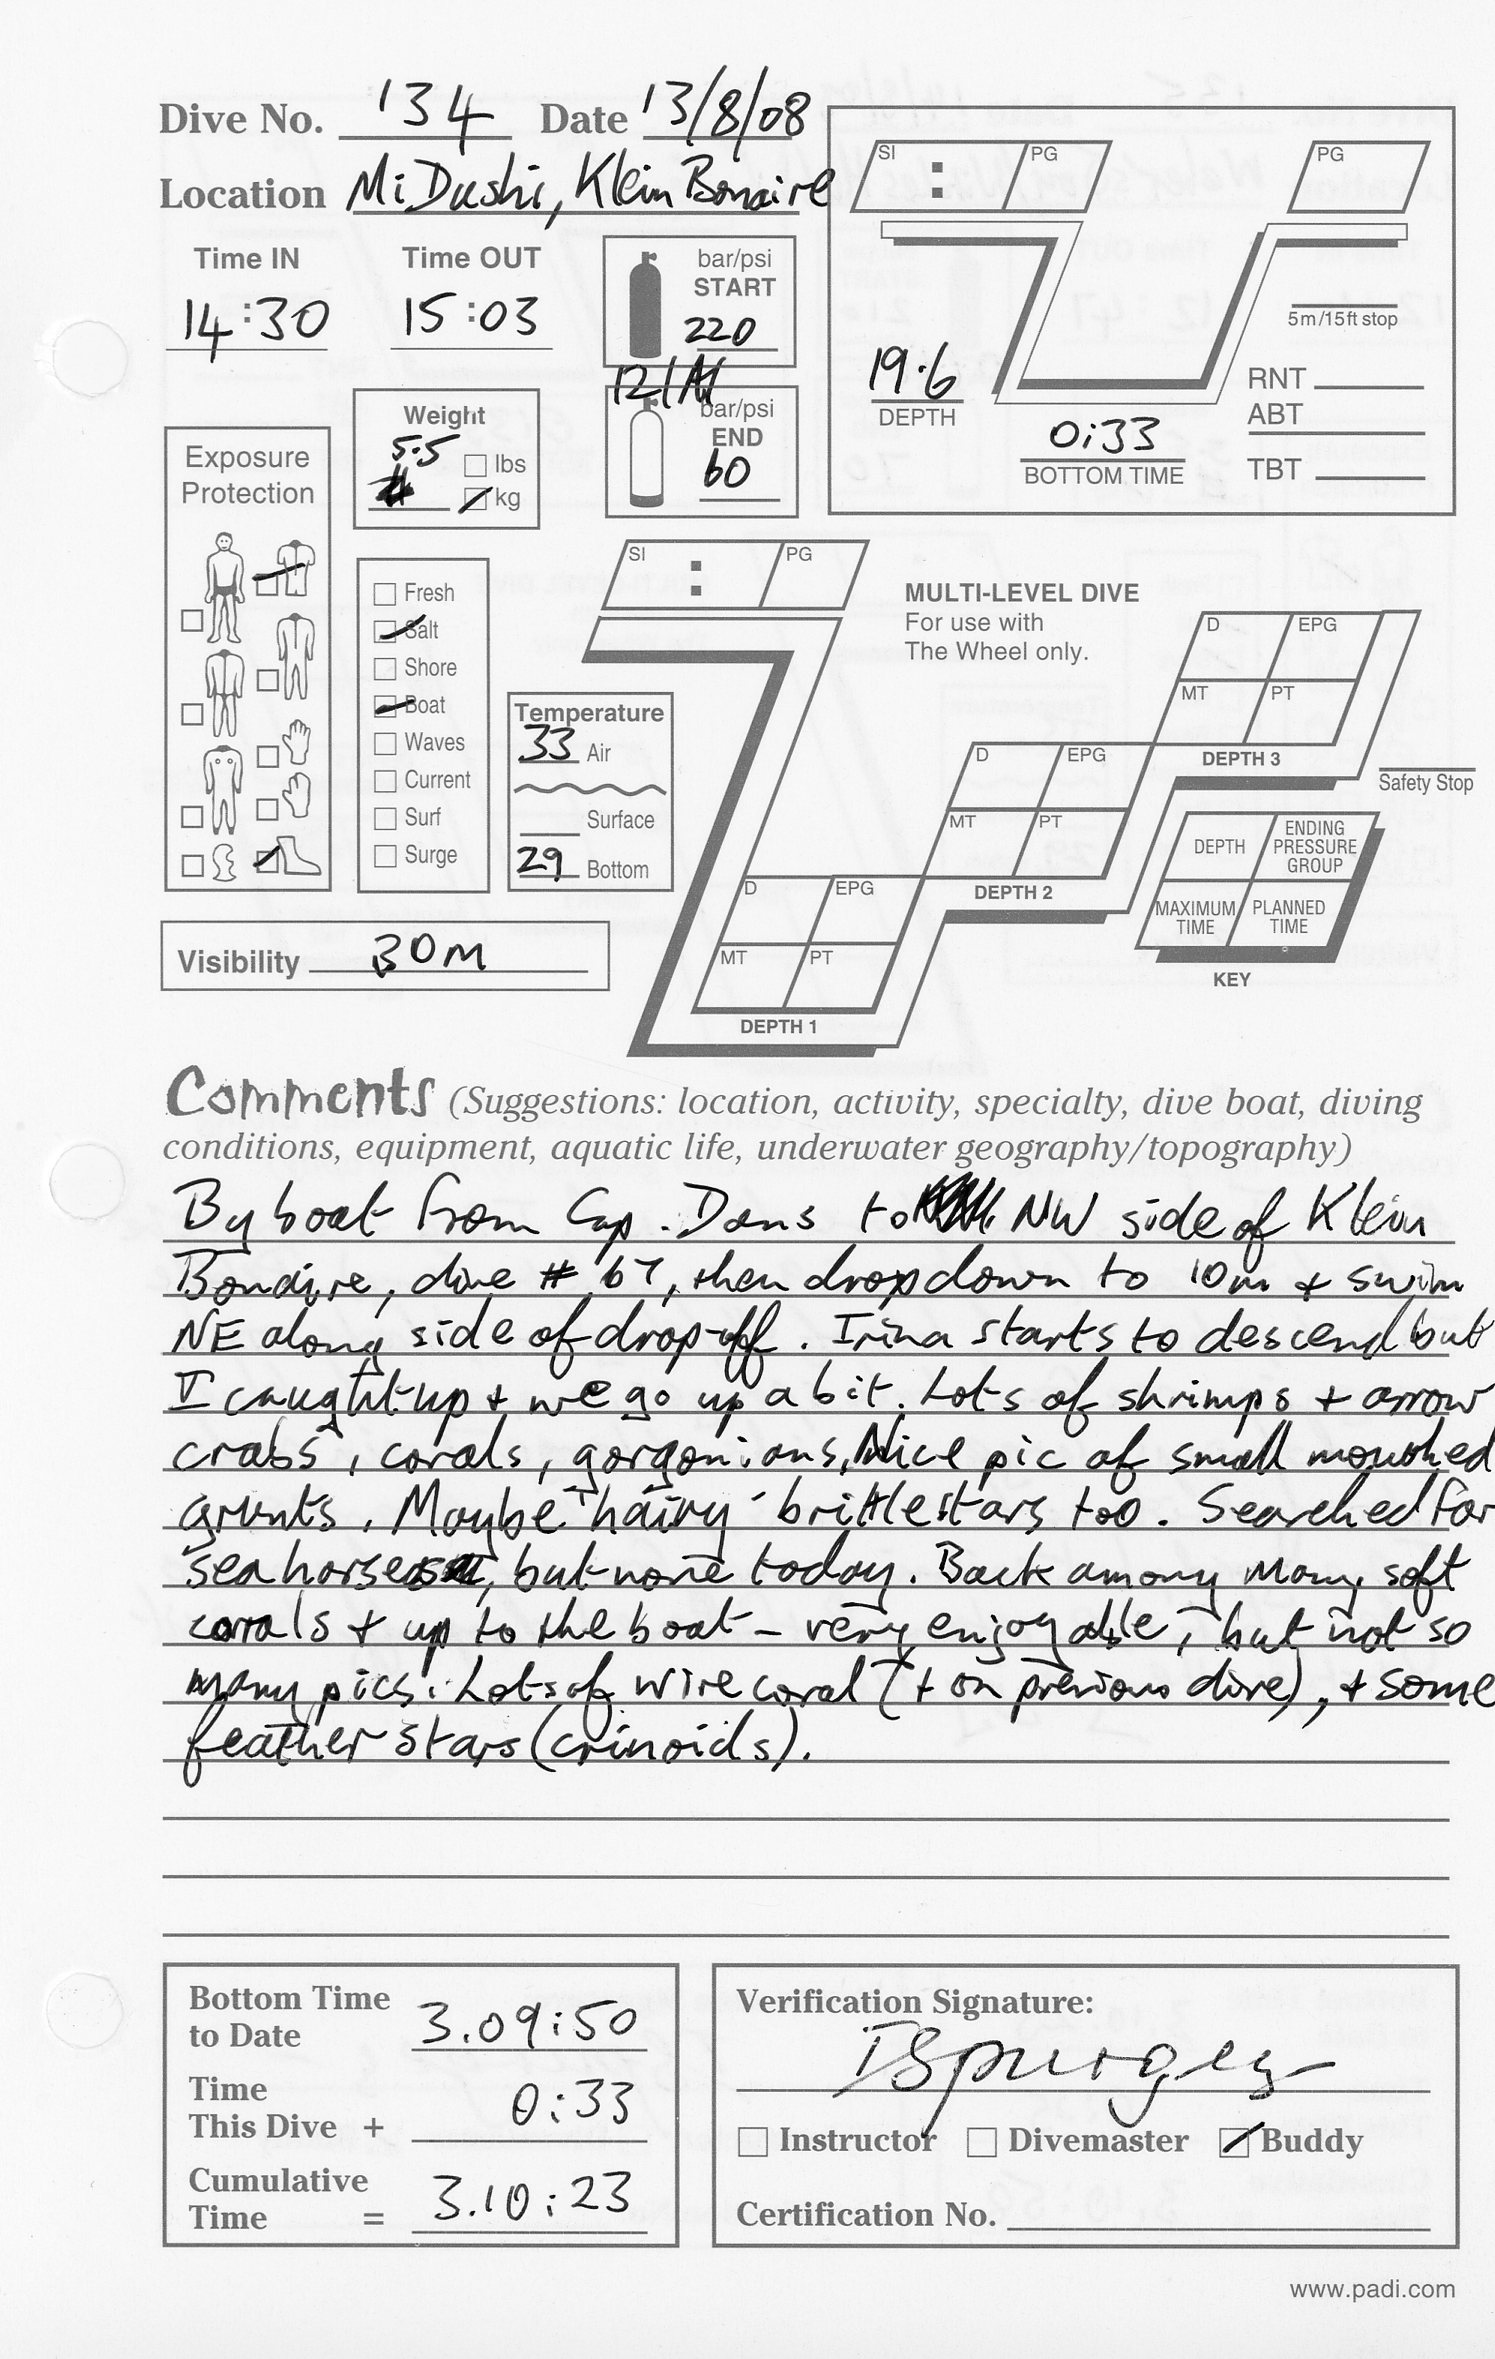 Dive No. 134 Date 13/8/08
Location Mi Dushi, Klein Bonaire
Time IN Time OUT
14:30 15:03
bar/psi
START
220
12 l Al
bar/psi
END
60
SI : PG PG
5m/15ft stop
19.6
DEPTH
0:33
BOTTOM TIME
RNT
ABT
TBT
Weight
5.5
lbs
kg
Exposure
Protection
Fresh
Salt
Shore
Boat
Waves
Current
Surf
Surge
Temperature
33 Air
Surface
29 Bottom
Visibility 30m
SI : PG
MULTI-LEVEL DIVE
For use with
The Wheel only.
D EPG
MT PT
DEPTH 3
Safety Stop
D EPG
MT PT
DEPTH 2
D EPG
MT PT
DEPTH 1
DEPTH ENDING PRESSURE GROUP
MAXIMUM TIME PLANNED TIME
KEY
Comments (Suggestions: location, activity, specialty, dive boat, diving
conditions, equipment, aquatic life, underwater geography/topography)
By boat from Cap. Dons to NW side of Klein
Bonaire, dive # 67, then drop down to 10m + swim
NE along side of drop-off. Irina starts to descend but
I caught up + we go up a bit. Lots of shrimps + arrow
crabs, corals, gorgonians, Nice pic of small mouthed
grunts. Maybe "hairy" brittlestars too. Searched for
sea horses, but none today. Back among many soft
corals + up to the boat - very enjoyable, but not so
many pics. Lots of wire coral (+ on previous dive), + some
feather stars (crinoids).
Bottom Time
to Date 3.09:50
Time
This Dive + 0:33
Cumulative
Time = 3.10:23
Verification Signature:
Instructor Divemaster Buddy
Certification No.
www.padi.com